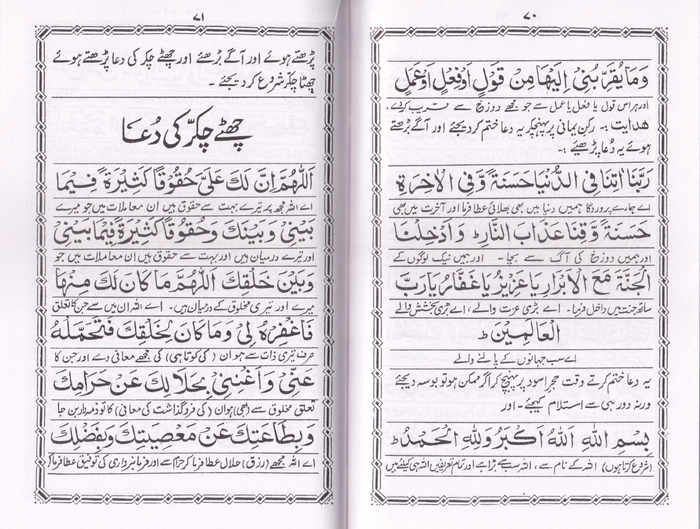 ۷۰
وَمَا يُقَرِّبُنِيْ اِلَيْهَا مِنْ قَوْلٍ اَوْ فِعْلٍ اَوْ عَمَلٍ
اور ہر اس قول یا فعل یا عمل سے جو مجھے دوزخ سے قریب کر دے۔
ھدایت :۔ رکن یمانی پر پہنچکر یہ دعا ختم کر دیجئے اور آگے بڑھتے
ہوئے یہ دُعا پڑھیئے :۔
رَبَّنَا اٰتِنَا فِي الدُّنْيَا حَسَنَةً وَّفِي الْاٰخِرَةِ
اے ہمارے پروردگار ہمیں دنیا میں بھی بھلائی عطا فرما اور آخرت میں بھی
حَسَنَةً وَّقِنَا عَذَابَ النَّارِ ط وَ اَدْخِلْنَا
اور ہمیں دوزخ کی آگ سے بچا۔ اور ہمیں نیک لوگوں کے
الْجَنَّةَ مَعَ الْاَبْرَارِ يَا عَزِيْزُ يَا غَفَّارُ يَا رَبَّ
ساتھ جنت میں داخل فرما۔ اے بڑی عزت والے، اے بڑی بخشش والے
الْعَالَمِيْنَ ط
اے سب جہانوں کے پالنے والے
یہ دعا ختم کرتے وقت حجر اسود پر پہنچ کر اگر ممکن ہو تو بوسہ دیجئے
ورنہ دور ہی سے استلام کیجئے۔ اور
بِسْمِ اللهِ اَللهُ اَكْبَرُ وَلِلّٰهِ الْحَمْدُ ط
(شروع کرتا ہوں) اللہ کے نام سے، اللہ سب سے بڑا ہے اور تمام تعریفیں اللہ ہی کیلئے ہیں
۷۱
پڑھتے ہوئے اور آگے بڑھئے اور چھٹے چکر کی دعا پڑھتے ہوئے
چھٹا چکر شروع کر دیجئے۔
چھٹے چکر کی دُعا
اَللّٰهُمَّ اِنَّ لَكَ عَلَيَّ حُقُوْقًا كَثِيْرَةً فِيْمَا
اے اللہ مجھ پر تیرے بہت سے حقوق ہیں ان معاملات میں جو میرے
بَيْنِيْ وَبَيْنَكَ وَحُقُوْقًا كَثِيْرَةً فِيْمَا بَيْنِيْ
اور تیرے درمیان ہیں اور بہت سے حقوق ہیں ان معاملات میں جو
وَبَيْنَ خَلْقِكَ اَللّٰهُمَّ مَا كَانَ لَكَ مِنْهَا
میرے اور تیری مخلوق کے درمیان ہیں۔ اے اللہ ان میں سے جن کا تعلق
فَاغْفِرْهُ لِيْ وَمَا كَانَ لِخَلْقِكَ فَتَحَمَّلْهُ
صرف تیری ذات سے ہو ان (کی کوتاہی) کی مجھے معافی دے اور جن کا
عَنِّيْ وَاَغْنِنِيْ بِحَلَالِكَ عَنْ حَرَامِكَ
تعلق مخلوق سے (بھی) ہو ان (کی فروگذاشت کی معافی) کا تو ذمہ دار بن جا
وَبِطَاعَتِكَ عَنْ مَعْصِيَتِكَ وَبِفَضْلِكَ
اے اللہ مجھے (رزق) حلال عطا فرما کر حرام سے اور فرمانبرداری کی توفیق عطا فرما کر